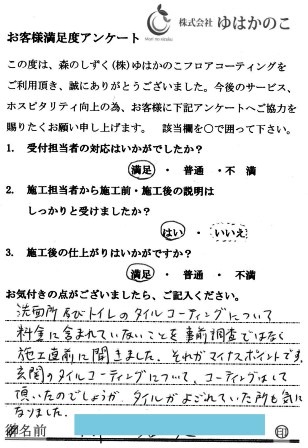 株式会社 ゆはかのこ
お客様満足度アンケート
この度は、森のしずく(株)ゆはかのこフロアコーティングを
ご利用頂き、誠にありがとうございました。今後のサービス、
ホスピタリティ向上の為、お客様に下記アンケートへご協力を
賜りたくお願い申し上げます。 該当欄を○で囲って下さい。
1. 受付担当者の対応はいかがでしたか?
満足 ・ 普通 ・ 不 満
2. 施工担当者から施工前・施工後の説明は
しっかりと受けましたか?
はい ・ いいえ
3. 施工後の仕上がりはいかがですか?
満足 ・ 普通 ・ 不満
お気付きの点がございましたら、ご記入ください。
洗面所及びトイレのタイルコーティングについて
料金に含まれていないことを事前調査ではなく
施工直前に聞きました。それがマイナスポイントです。
玄関のタイルコーティングについて、コーティングはして
頂いたのでしょうが、タイルがよごれていた所も気に
なりました。
名前 印